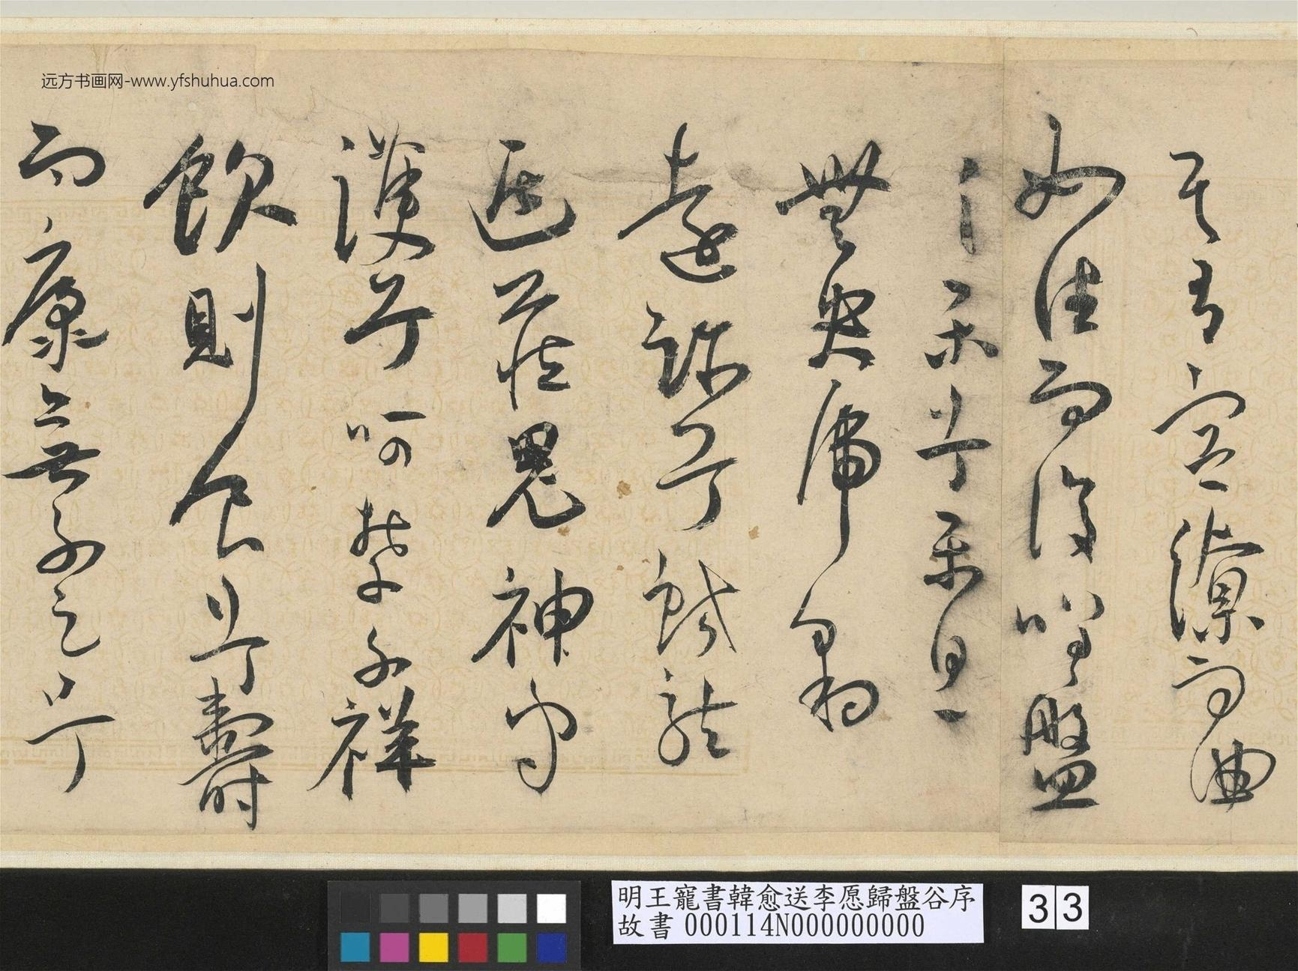 远方书画网-www.yfshuhua.com
其有容繚而曲
如往而復嗟盤
之樂兮樂且
無央虎豹
遠跡兮蛟龍
藏鬼神守
護兮呵禁不祥
飲則食兮壽
而康無不足兮
明王寵書韓愈送李愿歸盤谷序
故書 000114N000000000
33